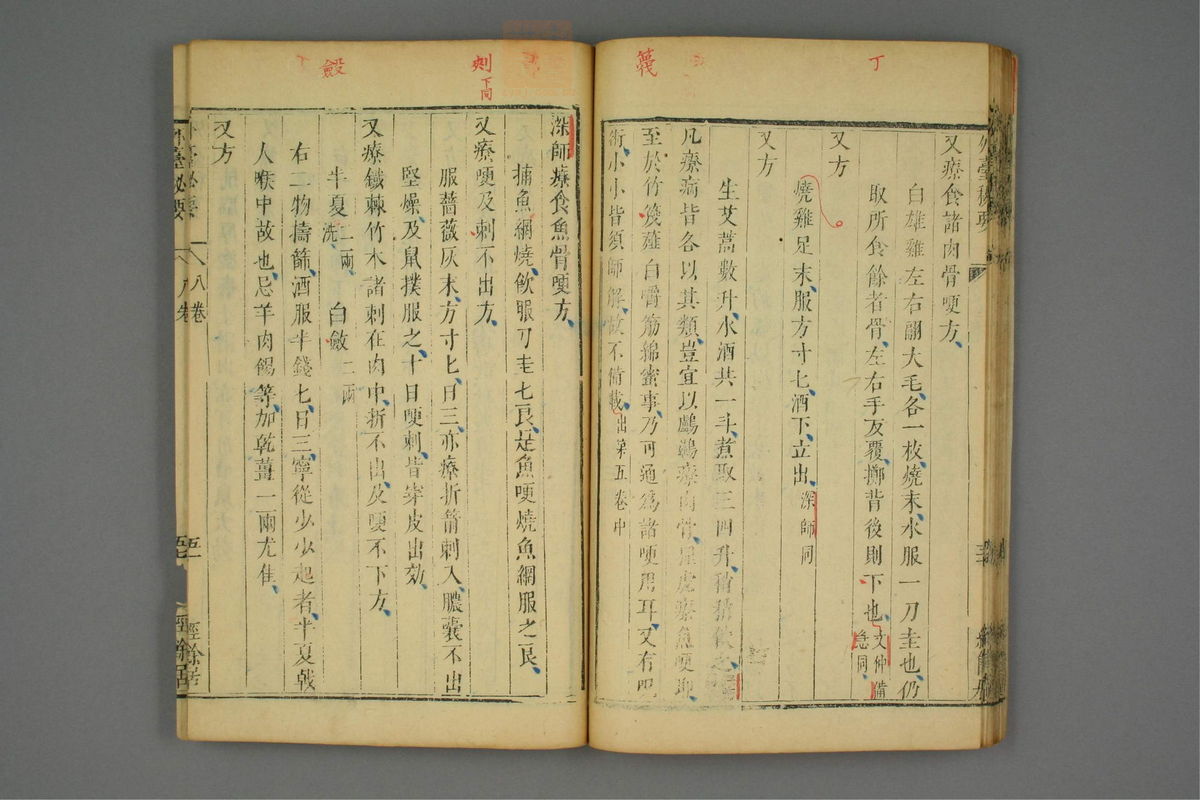 丁
篾
外臺秘要
又療食諸肉骨哽方
白雄雞左右翮大毛各一枚燒末水服一刀圭也仍
取所食餘者骨左右手反覆擲背後則下也文仲備急同
又方
燒雞足末服方寸匕酒下立出深師同
又方
生艾蒿數升水酒共一斗煮取三四升稍稍飲之
凡療病皆各以其類豈宜以鸕鷀療肉骨狸虎療魚哽耶
至於竹篾薤白嚼筋綿蜜事乃可通為諸哽用耳又有
術小小皆須師解故不備載出第五卷中
刺
下同
蘞
深師療食魚骨哽方
捕魚網燒飲服刀圭匕良是魚哽燒魚網服之良
又療哽及刺不出方
服薔薇灰末方寸匕日三亦療折箭刺入膿囊不出
堅燥及鼠撲服之十日哽刺皆穿皮出効
又療鐵棘竹木諸刺在肉中折不出及哽不下方
半夏二兩洗 白斂二兩
右二物擣篩酒服半錢匕日三寧從少少起者半夏戟
人喉中故也忌羊肉餳等加乾薑一兩尤佳
又方
外臺秘要
八卷
經餘居